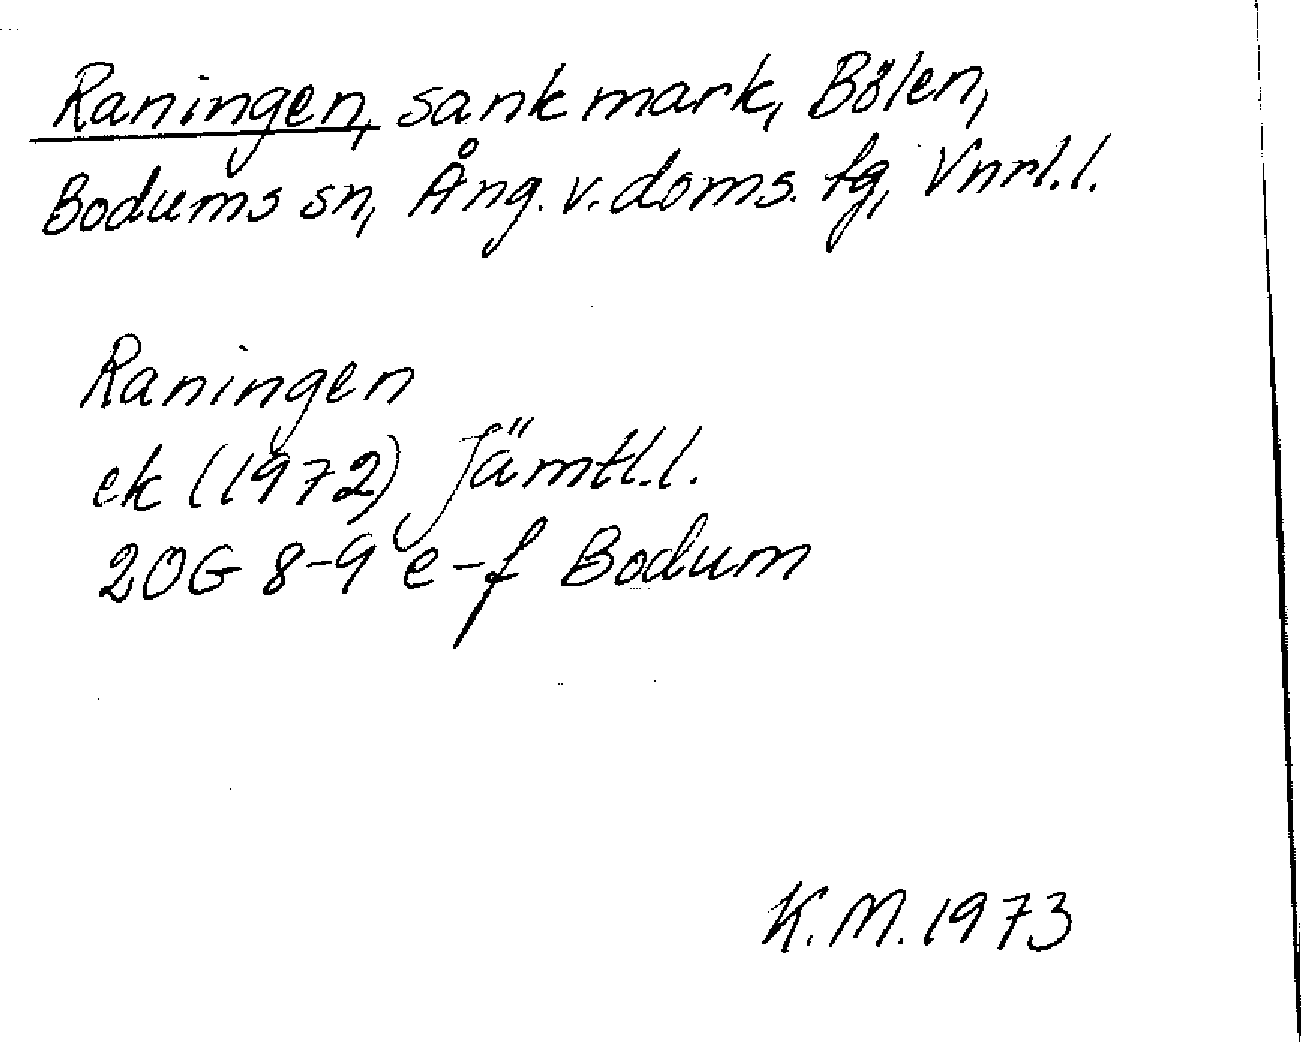 Raningen, sank mark, Bölen,
Bodums sn, Ång. v. doms. tg, Vnrl. l.
Raningen
ek (1972) Jämtl. l.
20G 8-9 e-f Bodum
K. M. 1973